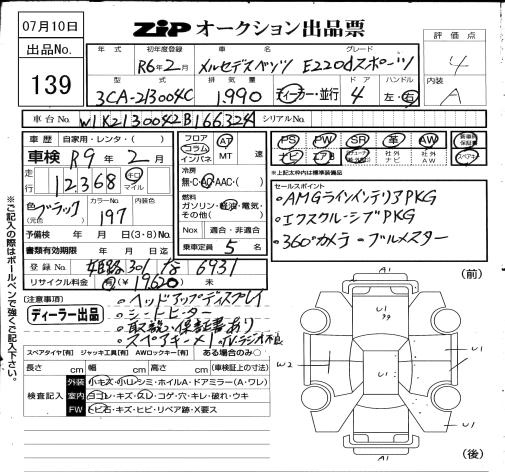 07月10日
出品No.
139
ZIP オークション出品票
評価点
4
内装
A
年式 初年度登録 車名 グレード
R6年2月 メルセデスベンツ E220dスポーツ
型式 排気量 ドア ハンドル
3CA-213004C 1,990 ディーラー・並行 4 左・右
車台No. W1K2130042B166324 シリアルNo.
車歴 自家用・レンタ・( )
車検 R9年2月
走行 12,368 Km マイル
色 ブラック (元色) カラーNo. 197 内装色
予備検 年 月 日(3・8)No.
書類有効期限 年 月 日迄
登録No. 姫路 301 な 6931
リサイクル料金 有(¥19620) 未
フロア コラム インパネ AT MT 速
冷房 無・C・AC・AAC・( )
燃料 ガソリン・軽油・電気・その他( )
Nox 適合・非適合
乗車定員 5 名
PS PW SR 革 AW 新車時保証書
ナビ エアB 社外ナビ 社外AW スペアキー
※上記太枠内は標準装備品
セールスポイント
・AMGラインインテリアPKG
・エクスクルーシブPKG
・360°カメラ ・ブルメスター
[注意事項]
ディーラー出品
・ヘッドアップディスプレイ
・シートヒーター
・取説・保証書あり
・スペアキーメ ・TV・ラジオ不良
スペアタイヤ[有] ジャッキ工具[有] AWロックキー[有] ある場合のみ○
長さ cm 幅 cm 高さ cm (車検証上の寸法)
検査記入
外装 小キズ・小凹・シミ・ホイルA・ドアミラー(A・ワレ)
室内 ヨゴレ・キズ・スレ・コゲ・穴・キレ・破れ・ウキ
FW トビ石・キズ・ヒビ・リペア跡・X要ス
※ご記入の際はボールペンで強くご記入下さい。
(前)
A1
U1
U1
W2
U1
U1
A1
(後)